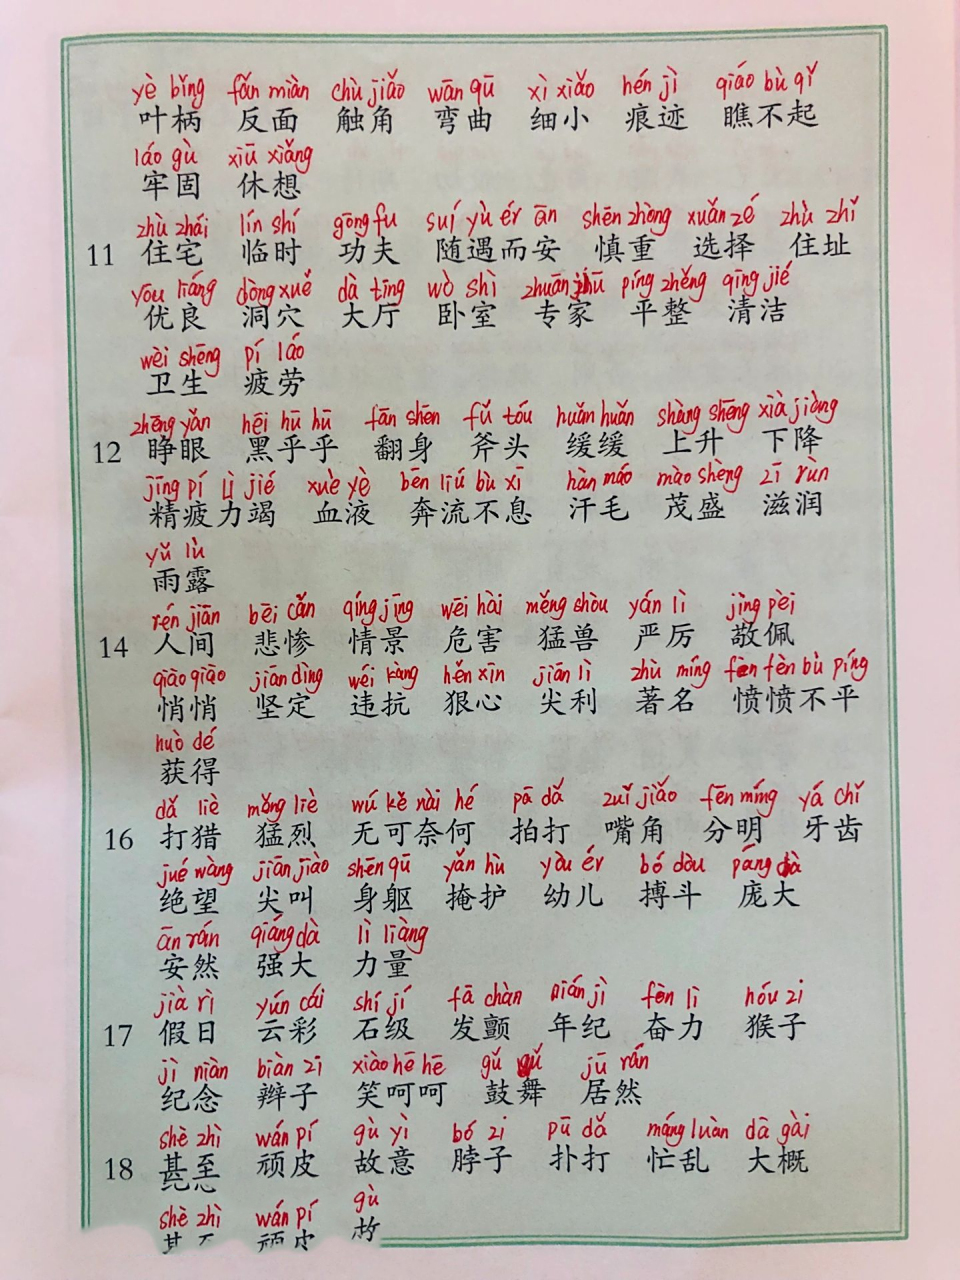 yè bǐng fǎn miàn chù jiǎo wān qū xì xiǎo hén jì qiáo bù qǐ
叶柄 反面 触角 弯曲 细小 痕迹 瞧不起
láo gù xiū xiǎng
牢固 休想
zhù zhái lín shí gōng fu suí yù ér ān shēn zhòng xuǎn zé zhù zhǐ
11 住宅 临时 功夫 随遇而安 慎重 选择 住址
yōu liáng dòng xué dà tīng wò shì zhuān píng zhěng qīng jié
优良 洞穴 大厅 卧室 专家 平整 清洁
wèi shēng pí láo
卫生 疲劳
zhēng yǎn hēi hū hū fān shēn fǔ tóu huǎn huǎn shàng shēng xià jiàng
12 睁眼 黑乎乎 翻身 斧头 缓缓 上升 下降
jīng pí lì jié xuè yè bēn liú bù xī hàn máo mào shèng zī rùn
精疲力竭 血液 奔流不息 汗毛 茂盛 滋润
yǔ lù
雨露
rén jiān bēi cǎn qíng jǐng wēi hài měng shòu yán lì jìng pèi
14 人间 悲惨 情景 危害 猛兽 严厉 敬佩
qiāo qiāo jiān dìng wéi kàng hěn xīn jiān lì zhù míng fèn fèn bù píng
悄悄 坚定 违抗 狠心 尖利 著名 愤愤不平
huò dé
获得
dǎ liè měng liè wú kě nài hé pā dǎ zuǐ jiǎo fēn míng yá chǐ
16 打猎 猛烈 无可奈何 拍打 嘴角 分明 牙齿
jué wàng jiān jiào shēn qū yǎn hù yòu ér bó dòu páng dà
绝望 尖叫 身躯 掩护 幼儿 搏斗 庞大
ān rán qiáng dà lì liàng
安然 强大 力量
jià rì yún cǎi shí jí fā chàn nián jì fèn lì hóu zi
17 假日 云彩 石级 发颤 年纪 奋力 猴子
jì niàn biàn zi xiào hē hē gǔ jū rán
纪念 辫子 笑呵呵 鼓舞 居然
shè zhì wán pí gù yì bó zi pū dǎ máng luàn dà gài
18 甚至 顽皮 故意 脖子 扑打 忙乱 大概
shè zhì wán pí gù